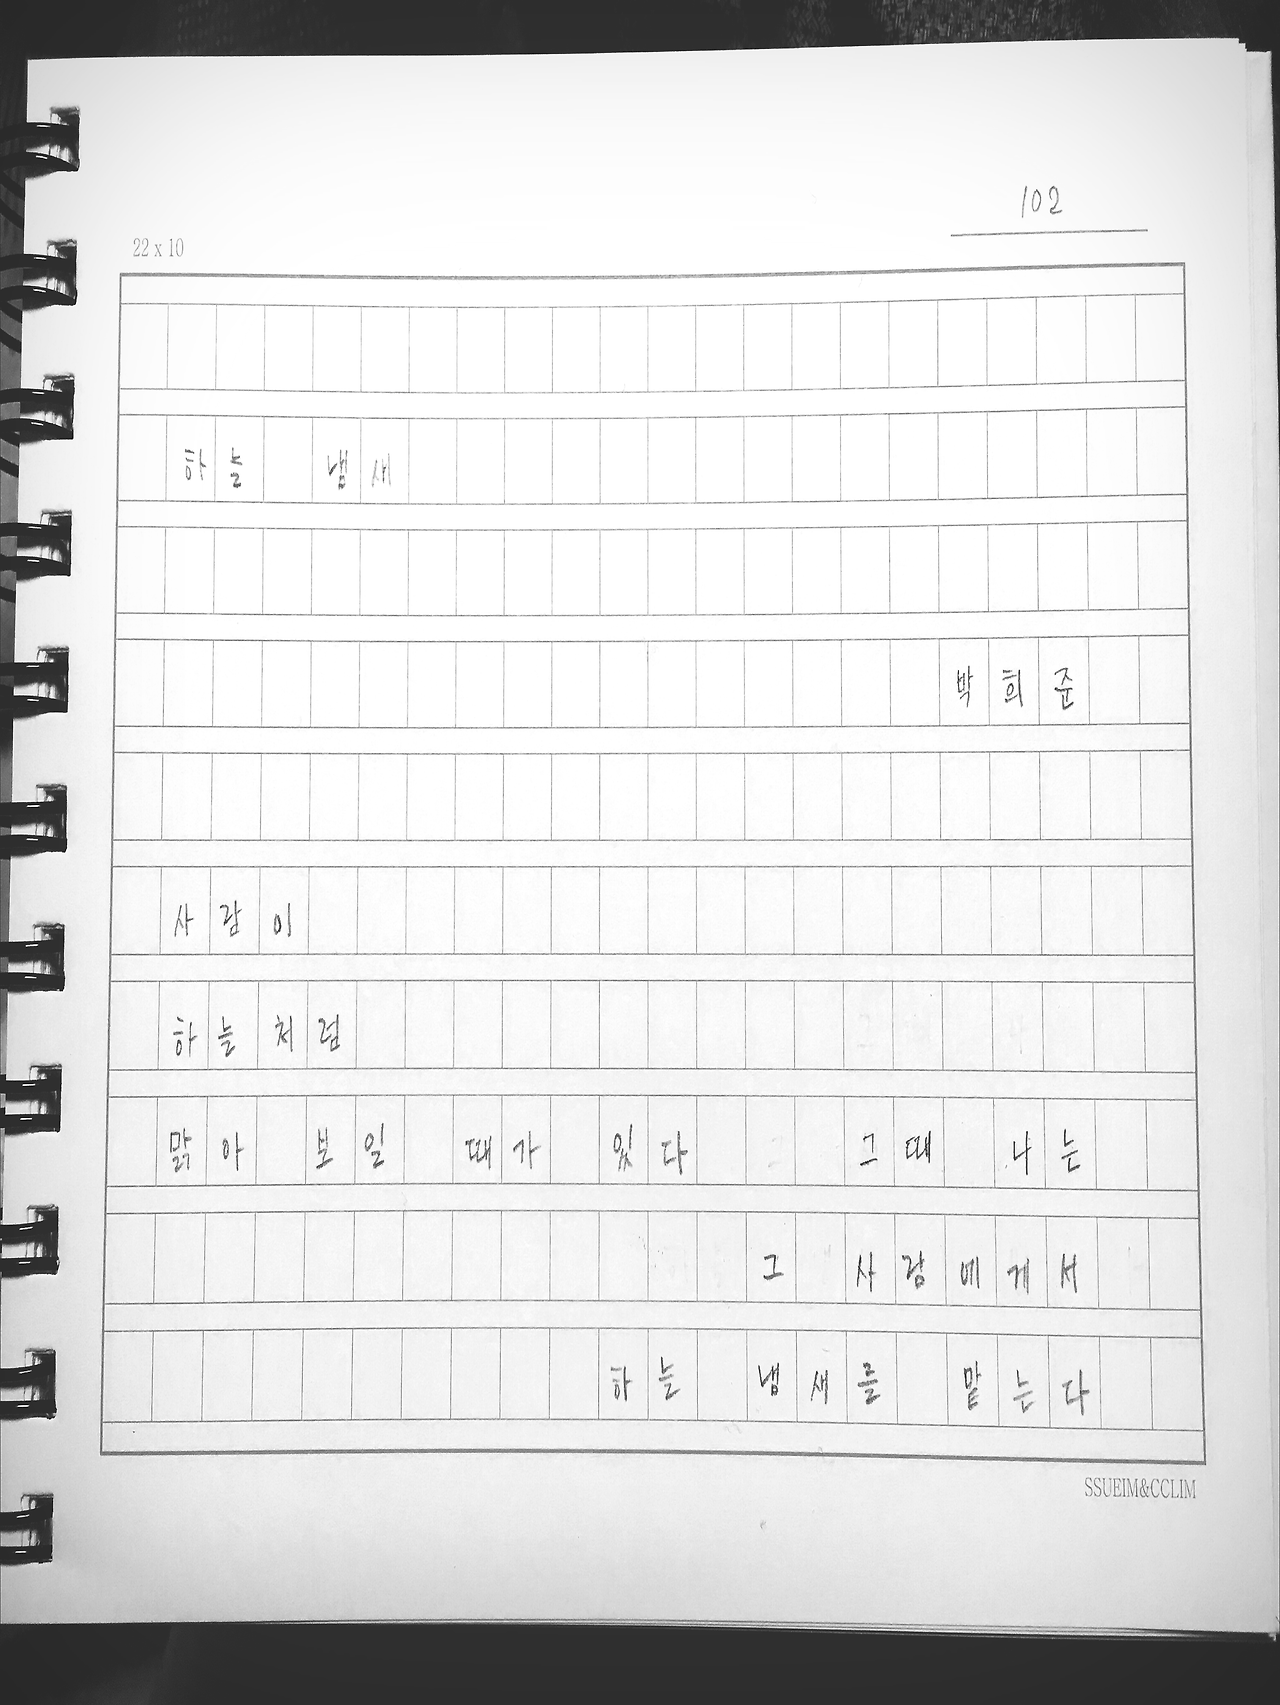 102
22 x 10
하늘 냄새
박희준
사람이
하늘처럼
맑아 보일 때가 있다 그때 나는
그 사람에게서
하늘 냄새를 맡는다
SSUEIM&CCLIM